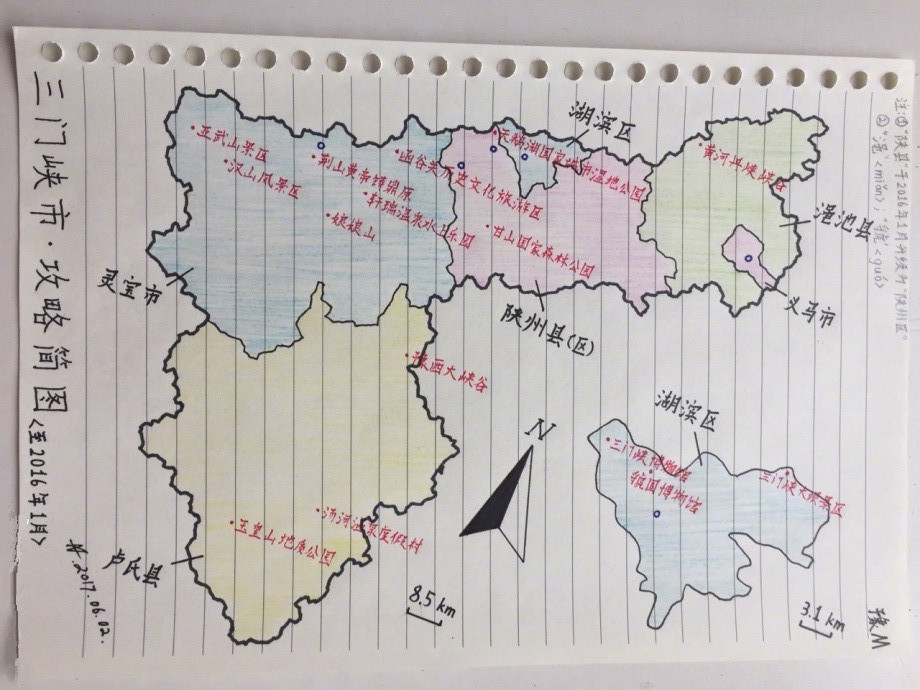 三门峡市·攻略简图<至2016年1月>
2017.06.02.
注:①"陕县"于2016年1月升级为"陕州区"
②"渑"<miǎn>;"虢"<guó>
湖滨区
亚武山景区
汉山风景区
荆山黄帝铸鼎原
函谷关历史文化旅游区
轩瑞温泉水上乐园
娘娘山
天鹅湖国家城市湿地公园
甘山国家森林公园
黄河丹峡峡谷
渑池县
义马市
灵宝市
陕州县(区)
豫西大峡谷
玉皇山地质公园
汤河温泉度假村
卢氏县
N
8.5 km
湖滨区
三门峡博物馆
虢国博物馆
三门峡大坝景区
3.1 km
豫M